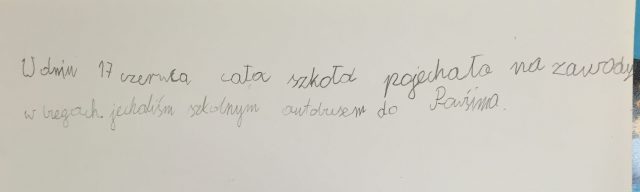 W dniu 17 czerwca cała szkoła pojechała na zawody
w biegach. jechaliśm szkolnym autobusem do